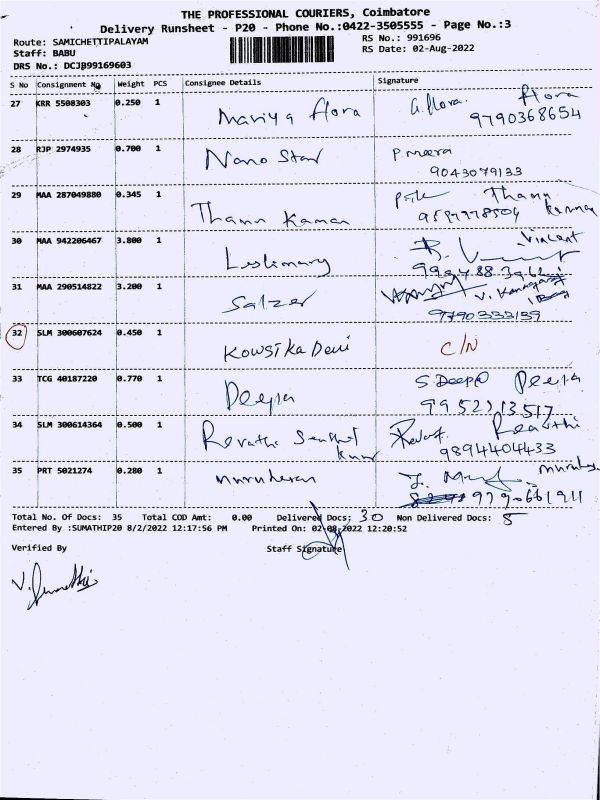 THE PROFESSIONAL COURIERS, Coimbatore
Delivery Runsheet - P20 - Phone No.:0422-3505555 - Page No.:3
Route: SAMICHETTIPALAYAM
RS No.: 991696
Staff: BABU
RS Date: 02-Aug-2022
DRS No.: DCJB99169603
S No Consignment No Weight PCS Consignee Details Signature
27 KRR 5508303 0.250 1 Mariya flora G.flora. flora
9790368654
28 RJP 2974935 0.700 1 Nano Star P.meera
9043079133
29 MAA 287049880 0.345 1 Thamn Kannan Thamn
30 MAA 942206467 3.800 1 Leslimary R. Vincent
31 MAA 290514822 3.200 1 Salzer
9790333139
32 SLM 300607624 0.450 1 Kowsika Devi C/N
33 TCG 40187220 0.770 1 Deepa S.Deepa Deepa
9952213517
34 SLM 300614364 0.500 1 Revathi Senthil Kumar Revathi
9894404433
35 PRT 5021274 0.280 1 murukesan
Total No. Of Docs: 35 Total COD Amt: 0.00 Delivered Docs: 30 Non Delivered Docs: 5
Entered By :SUMATHIP20 8/2/2022 12:17:56 PM Printed On: 02-08-2022 12:20:52
Verified By Staff Signature
V. Sumathi